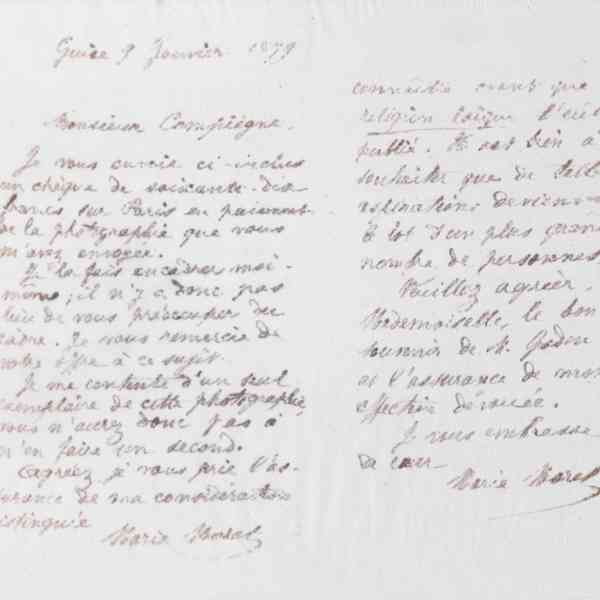 Guise 9 Janvier 1879
Monsieur Compiègne,
Je vous envoie ci-inclus
un chèque de soixante-dix
francs sur Paris en paiement
de la photographie que vous
m'avez envoyée.
Je la fais encadrer moi-
même; il n'y a donc pas
lieu de vous préoccuper du
cadre. Je vous remercie de
votre offre à ce sujet.
Je me contente d'un seul
exemplaire de cette photographie,
vous n'aurez donc pas à
m'en faire un second.
Agréez je vous prie l'as-
surance de ma considération
distinguée
Marie Moret
connaître avant que
religion laïque l'eût
publié. Il est bien à
souhaiter que de telles
aspirations deviennent
le lot d'un plus grand
nombre de personnes
Veuillez agréer,
Mademoiselle, le bon
souvenir de M. Godin
et l'assurance de mon
affection dévouée.
Je vous embrasse
de cœur
Marie Moret